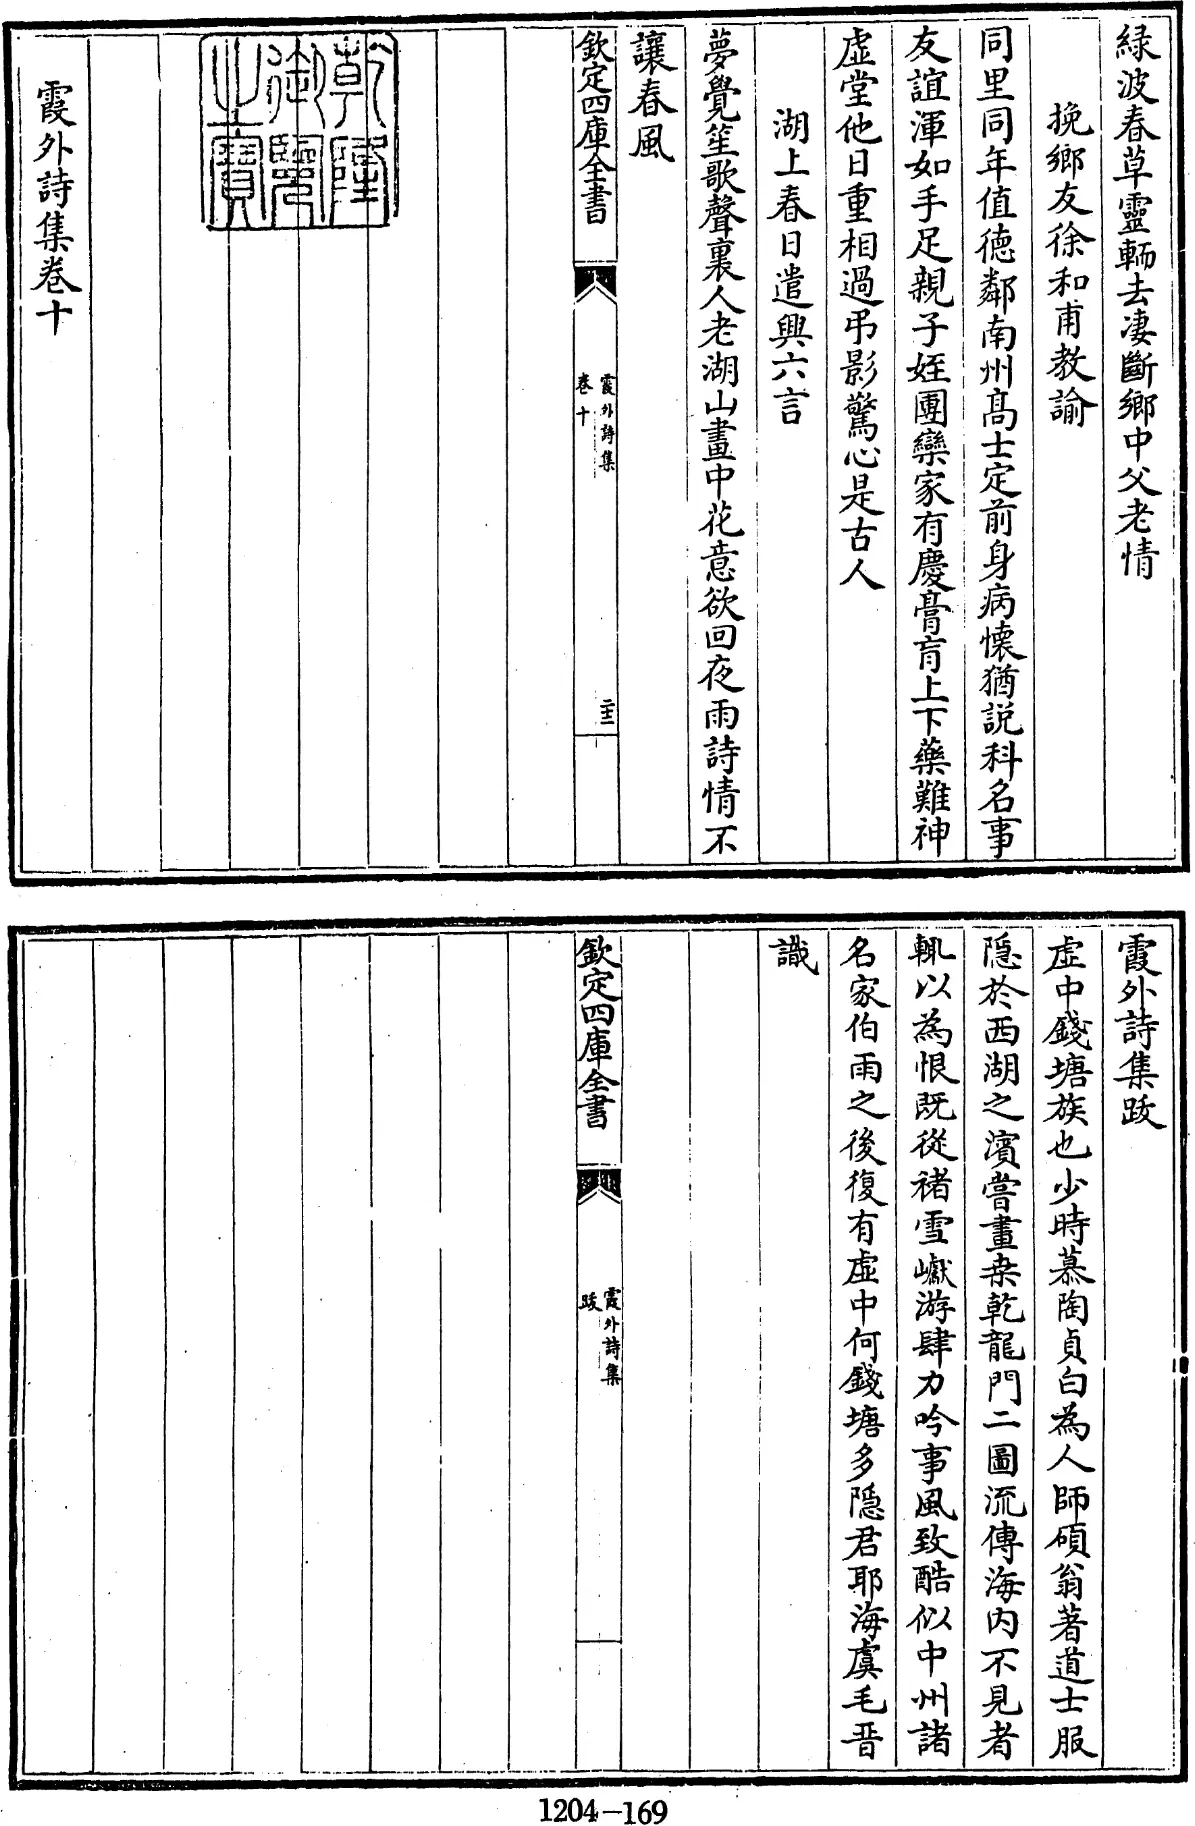 緑波春草靈輀去淒斷鄉中父老情
挽鄉友徐和甫教諭
同里同年值德鄰南州髙士定前身病懐猶説科名事
友誼渾如手足親子姪團欒家有慶膏肓上下藥難神
虚堂他日重相過弔影驚心是古人
湖上春日遣興六言
夢覺笙歌聲裏人老湖山畫中花意欲回夜雨詩情不
讓春風
欽定四庫全書
霞外詩集
卷十
二十三
乾隆御覽之寶
霞外詩集卷十
霞外詩集跋
虚中錢塘族也少時慕陶貞白為人師碩翁著道士服
隠於西湖之濱嘗畫桒乾龍門二圖流傳海内不見者
輒以為恨既從褚雪巘游肆力吟事風致酷似中州諸
名家伯雨之後復有虚中何錢塘多隠君耶海虞毛晋
識
欽定四庫全書
霞外詩集
跋
1204-169